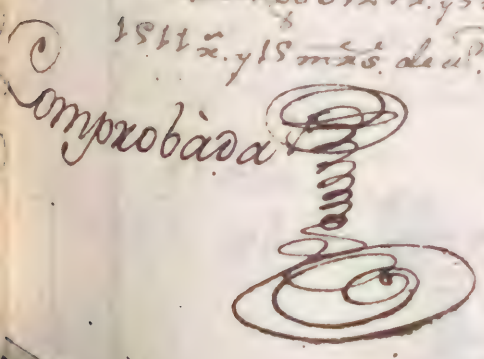 1511 r̃. y 15 mr̃s. de v.
Comprobàda